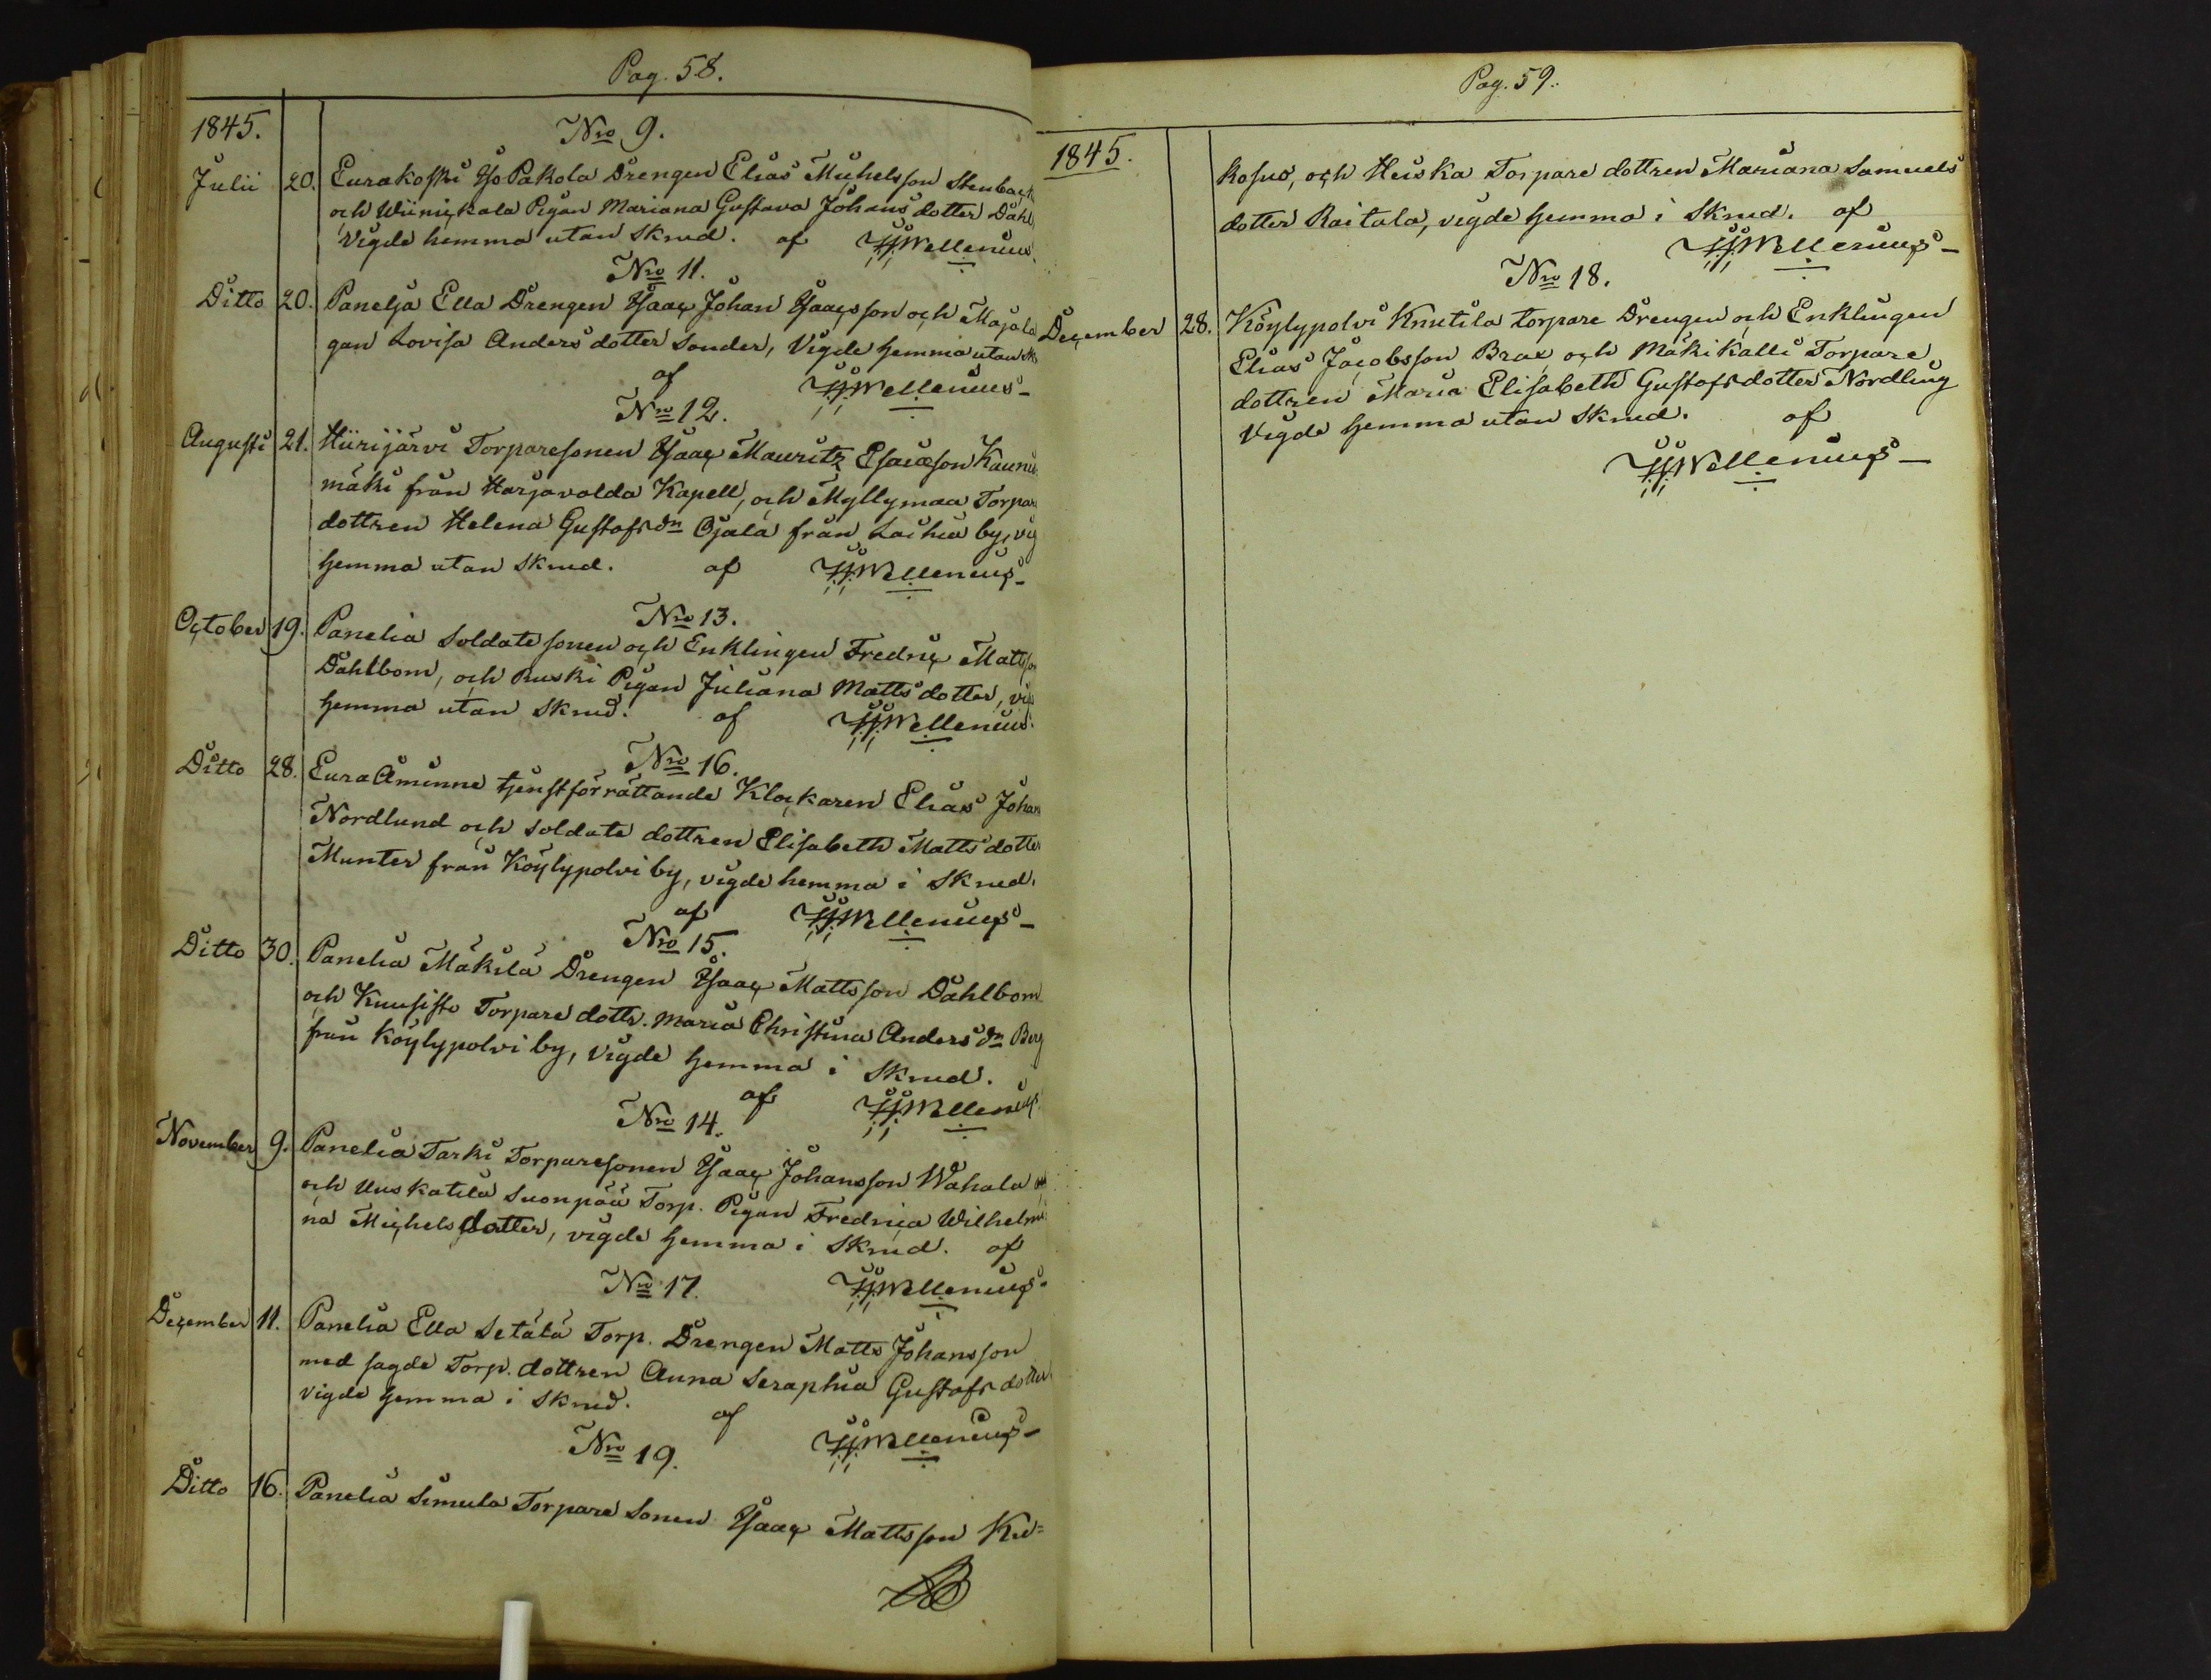 Pag. 58.
1845.
Nro 9.
Julii 20. Eurakoski Iso Pakola Drengen Elias Michelsson Stenback
och Wiinickala Pigan Mariana Gustava Johans dotter Dahl
Vigde hemma utan Skrud. af Wellenius.
Nro 11.
Ditto 20. Panelja Ella Drengen Isaac Johan Isaacsson och Majala
gan Lovisa Anders dotter Sonder, Vigde hemma utan Sk
af Wellenius
Nro 12.
Augusti 21. Hiirijärvi Torparesonen Isaac Mauritz Esaiæson Kaunis
mäki från Harjavalda Kapell, och Myllymaa Torpar
dottren Helena Gustafs dr Ojala från Laihia by, vig
hemma utan Skrud. af Wellenius
Nro 13.
October 19. Panelia Soldate sonen och Enklingen Fredric Mattsson
Dahlbom, och Ruski Pigan Juliana Matts dotter, vig
hemma utan Skrud. af Wellenius.
Nro 16.
Ditto 28. Eura Åminne tjenstförrättande Klockaren Elias Johan
Nordlund och Soldate dottren Elisabeth Matts dotter
Munter från Köylypolvi by, vigde hemma i Skrud.
af Wellenius
Nro 15.
Ditto 30. Panelia Mäkilä Drengen Isaac Mattsson Dahlbom
och Kuusisto Torpare dottr. Maria Christina Anders dr Berg
från Köylypolvi by, Vigde hemma i Skrud.
af Wellenius
Nro 14.
November 9. Panelia Tarki Torparesonen Isaac Johansson Wahala
och Uuskatila Suonpää Torp. Pigan Fredrica Wilhelmi
na Michels dotter, vigde hemma i Skrud. af
Nro 17. Wellenius
December 11. Panelia Ella Setälä Torp. Drengen Matts Johansson
med sagde Torp. dottren Anna Seraphia Gustafs dotter
vigde hemma i Skrud. af
Nro 19. Wellenius
Ditto 16. Panelia Simula Torpare Sonen Isaac Mattsson Ku=
Pag. 59.
1845.
kosuo, och Heiska Torpare dottren Mariana Samuels
dotter Raitala, vigde hemma i Skrud. af
Wellenius
Nro 18.
December 28. Köylypolvi Knutila torpare Drengen och Enklingen
Elias Jacobsson Brax och Mäkikalli Torpare
dottren Maria Elisabeth Gustafs dotter Nordling
Vigde hemma utan Skrud. af
Wellenius